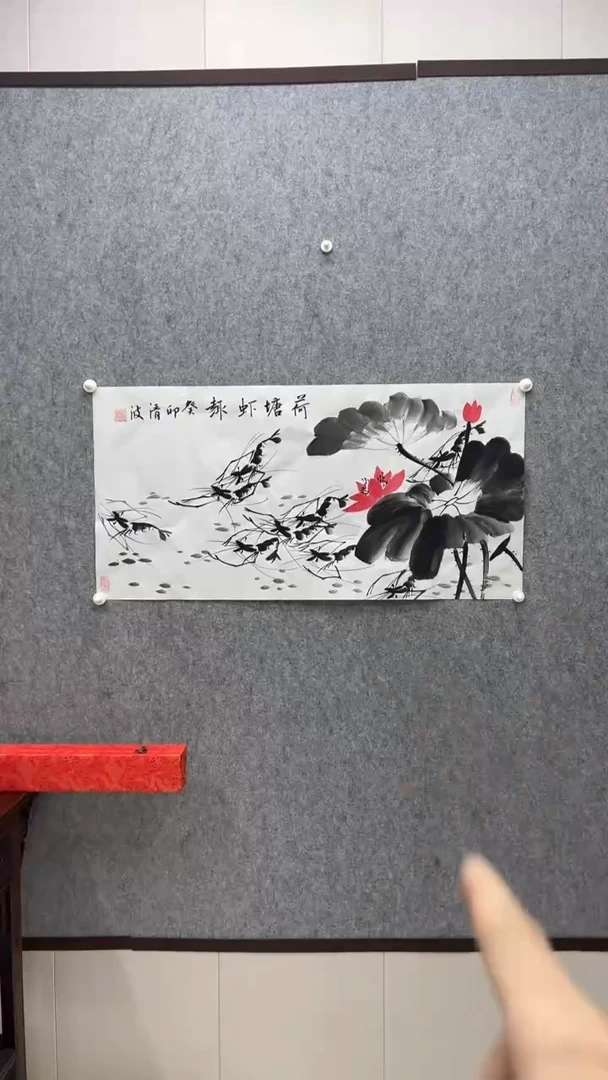 荷塘虾趣 癸卯清波